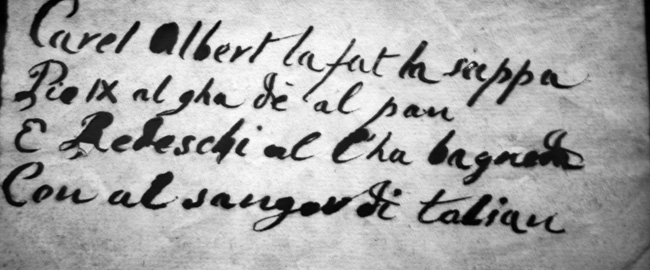 Carel Albert la fat la seppa
Pio IX al gha dè al pan
E Redeschi al l'ha bagnada
Con al sangov di talian